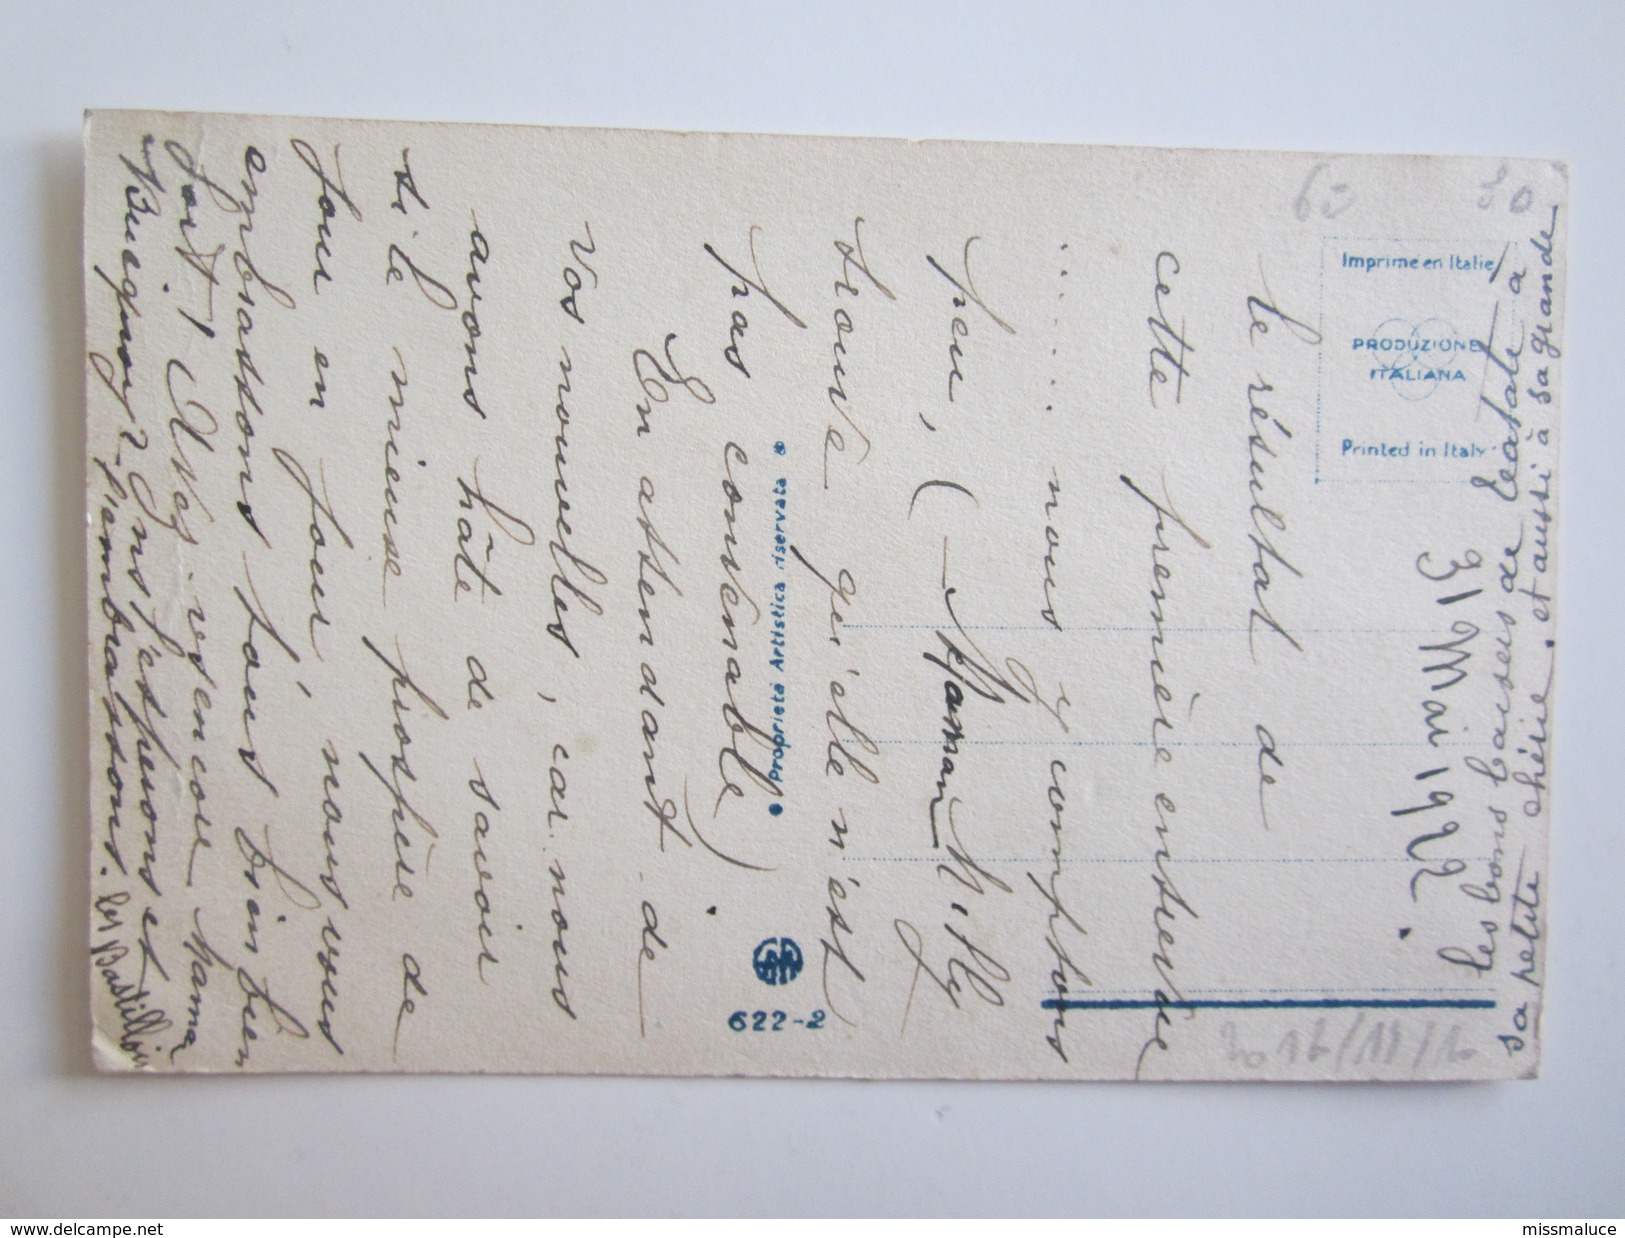 31 Mai 1922.
les bons baisers de
sa petite chérie. et aussi à sa grande
le résultat de
cette première entrevue
.... nous y comptons
peu, (Maman Mily
trouve qu'elle n'est
pas convenable)
En attendant de
vos nouvelles, car nous
avons hâte de savoir
si le mieux prospère de
jour en jour, nous vous
embrassons tous bien bien
fort. Avez-vs encore Maman
Bucquoy? Ns l'espérons et
l'embrassons. les
Imprimé en Italie
PRODUZIONE
ITALIANA
Printed in Italy
• Proprietà Artistica riservata •
622-2
65
50
www.delcampe.net
missmaluce